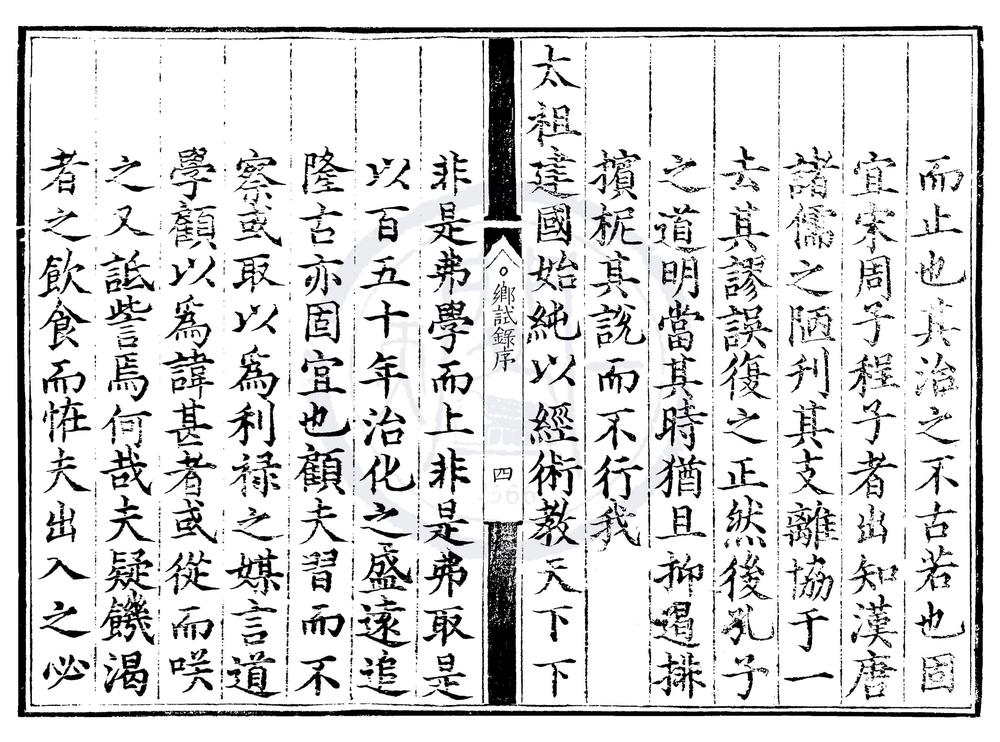 而止也其治之不古若也固
宜宋周子程子者出知漢唐
諸儒之陋刋其支離協于一
去其謬誤復之正然後孔子
之道明當其時猶且抑遏排
擯柅其說而不行我
太祖建國始純以經術教天下下
鄉試錄序
四
非是弗學而上非是弗取是
以百五十年治化之盛遠追
隆古亦固宜也顧夫習而不
察或取以為利祿之媒言道
學顧以爲諱甚者或從而咲
之又詆訾焉何哉夫疑饑渴
者之飲食而恠夫出入之必